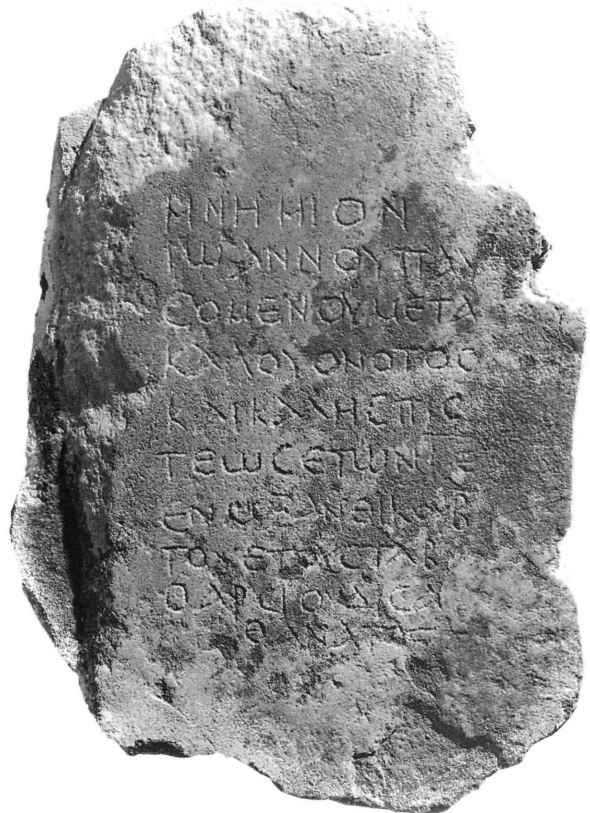 ΜΝΗΜΙΟΝ
ΙΩΑΝΝΟΥ ΠΑΥ
CΟΜΕΝΟΥ ΜΕΤΑ
ΚΑΛΟΥ ΟΝΟΤΟC
ΚΑΙ ΚΑΛΗC ΠΙC
ΤΕΩC ΕΤΩΝ ΙΕ
ΕΝ Μ ΞΑΝΘΙΚΟΥ Β
ΤΟΥ ΕΤΟΥC
ΘΑΡCΙ ΟΥΔΙC Α